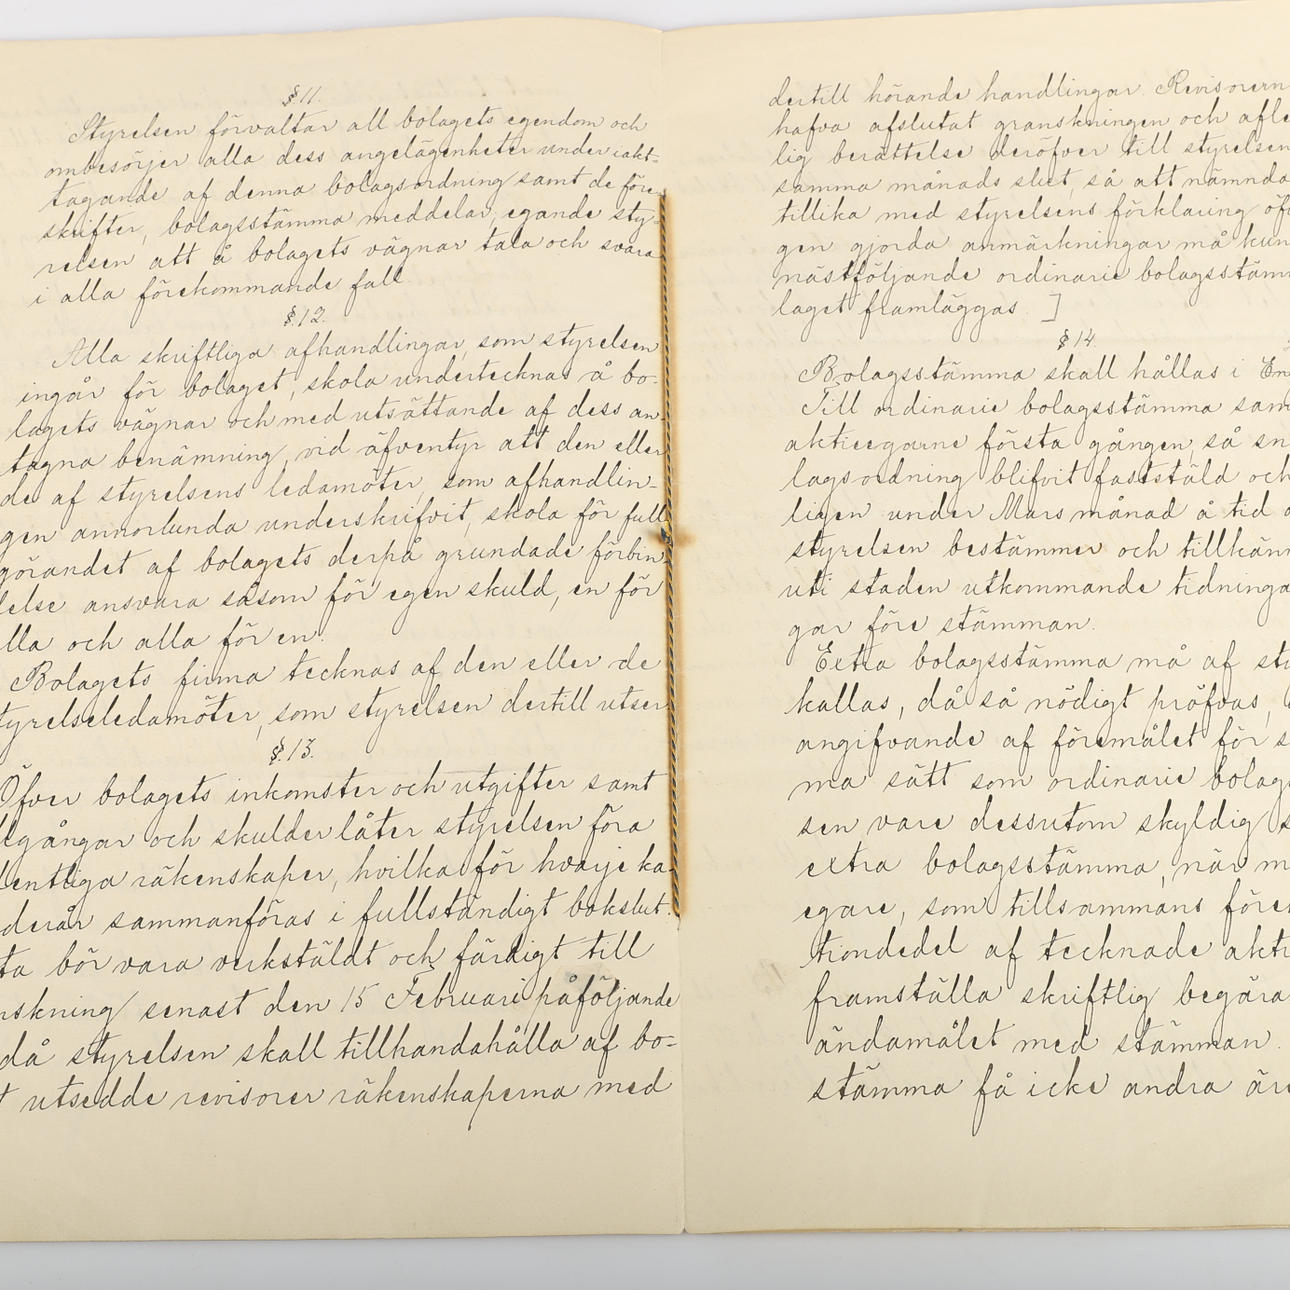 § 11.
Styrelsen förvaltar all bolagets egendom och
ombesörjer alla dess angelägenheter under iakt-
tagande af denna bolagsordning samt de före-
skrifter, bolagsstämma meddelar, egande sty-
relsen att å bolagets vägnar tala och svara
i alla förekommande fall.
§ 12.
Alla skriftliga afhandlingar, som styrelsen
ingår för bolaget, skola undertecknas å bo-
lagets vägnar och med utsättande af dess an-
tagna benämning, vid äfventyr att den eller
de af styrelsens ledamöter, som afhandlin-
gen annorlunda underskrifvit, skola för full
görandet af bolagets derpå grundade förbin-
delse ansvara såsom för egen skuld, en för
alla och alla för en.
Bolagets firma tecknas af den eller de
styrelseledamöter, som styrelsen dertill utser.
§ 13.
Öfver bolagets inkomster och utgifter samt
llgångar och skulder låter styrelsen föra
dentliga räkenskaper, hvilka för hvarje ka-
derår sammanföras i fullständigt bokslut.
ta bör vara verkstäldt och färdigt till
nskning senast den 15 Februari påföljande
då styrelsen skall tillhandahålla af bo-
t utsedde revisorer räkenskaperna med
dertill hörande handlingar. Revisorern
hafva afslutat granskningen och afle
lig berättelse deröfver till styrelsen
samma månads slut, så att nämnda
tillika med styrelsens förklaring öf
gen gjorda anmärkningar må kun
nästföljande ordinarie bolagsstäm
laget framläggas. ]
§ 14.
Bolagsstämma skall hållas i En
Till ordinarie bolagsstämma sam
aktieegarne första gången, så sn
lagsordning blifvit fastställd och
ligen under Mars månad å tid o
styrelsen bestämmer och tillkän
uti staden utkommande tidninga
gar före stämman.
Extra bolagsstämma må af sty
kallas, då så nödigt pröfvas,
angifvande af föremålet för s
ma sätt som ordinarie bolags
sen vare dessutom skyldig s
extra bolagsstämma, när m
egare, som tillsammans före
tiondedel af tecknade akti
framställa skriftlig begära
ändamålet med stämman.
stämma få icke andra äre